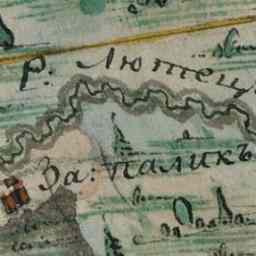 Р: Лютец
За: паликъ